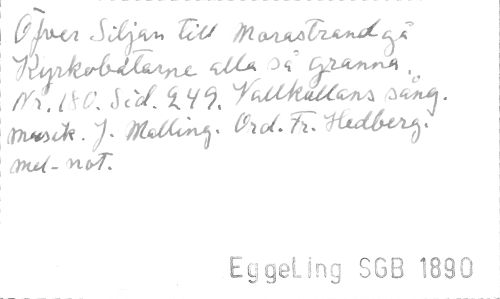 Öfver Siljan till Morastrand gå
Kyrkobåtarne alla så granna.
Nr. 180. Sid. 249. Vallkullans sång.
musik. J. Malling. Ord. Fr. Hedberg.
mel-not.
EggeLing SGB 1890